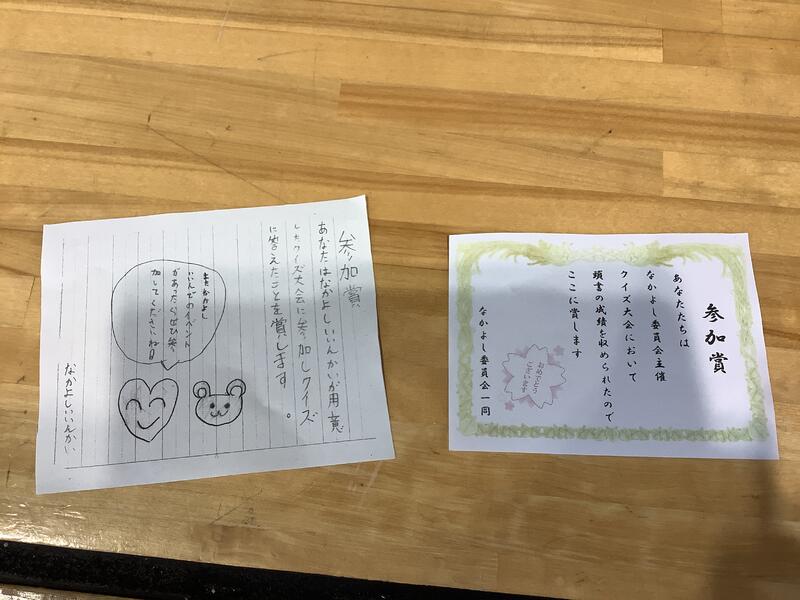 参加賞
あなたはなかよしいいんかいが用意
したクイズ大会に参加しクイズ
に答えたことを賞します。
またなかよし
いいんでのイベント
があったらぜひ参
加してくださいね
なかよしいいんかい
参加賞
あなたたちは
なかよし委員会主催
クイズ大会において
頭書の成績を収められたので
ここに賞します
おめでとう
ございます
なかよし委員会一同